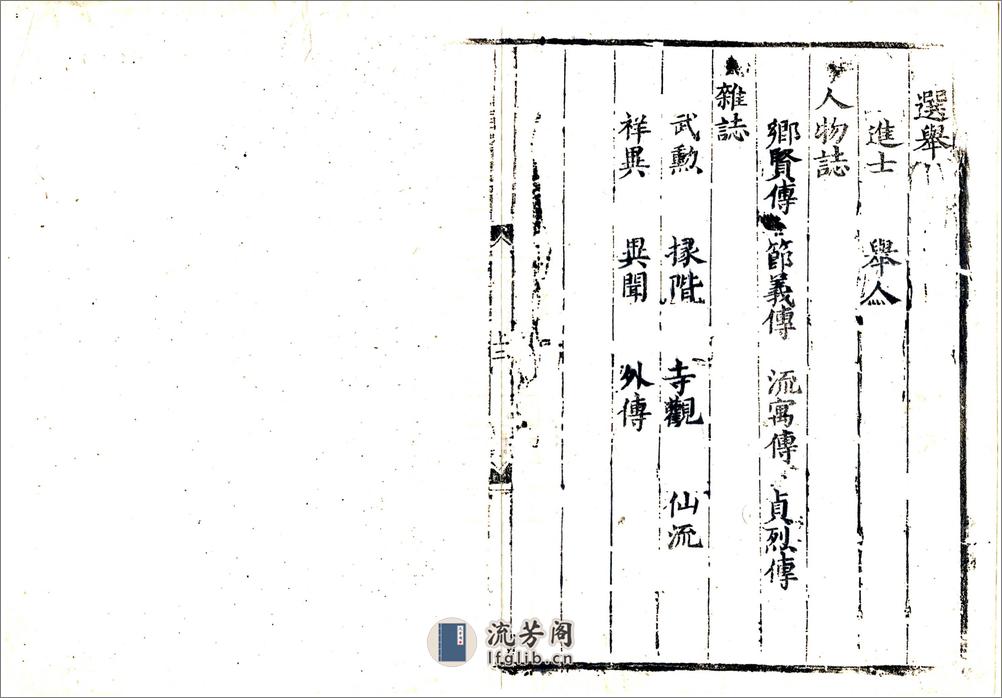 選舉
進士 舉人
人物誌
鄉賢傳 節義傳 流寓傳 貞烈傳
雜誌
武勲 掾階 寺觀 仙流
祥異 異聞 外傳
上二
流芳阁
lfglib.cn